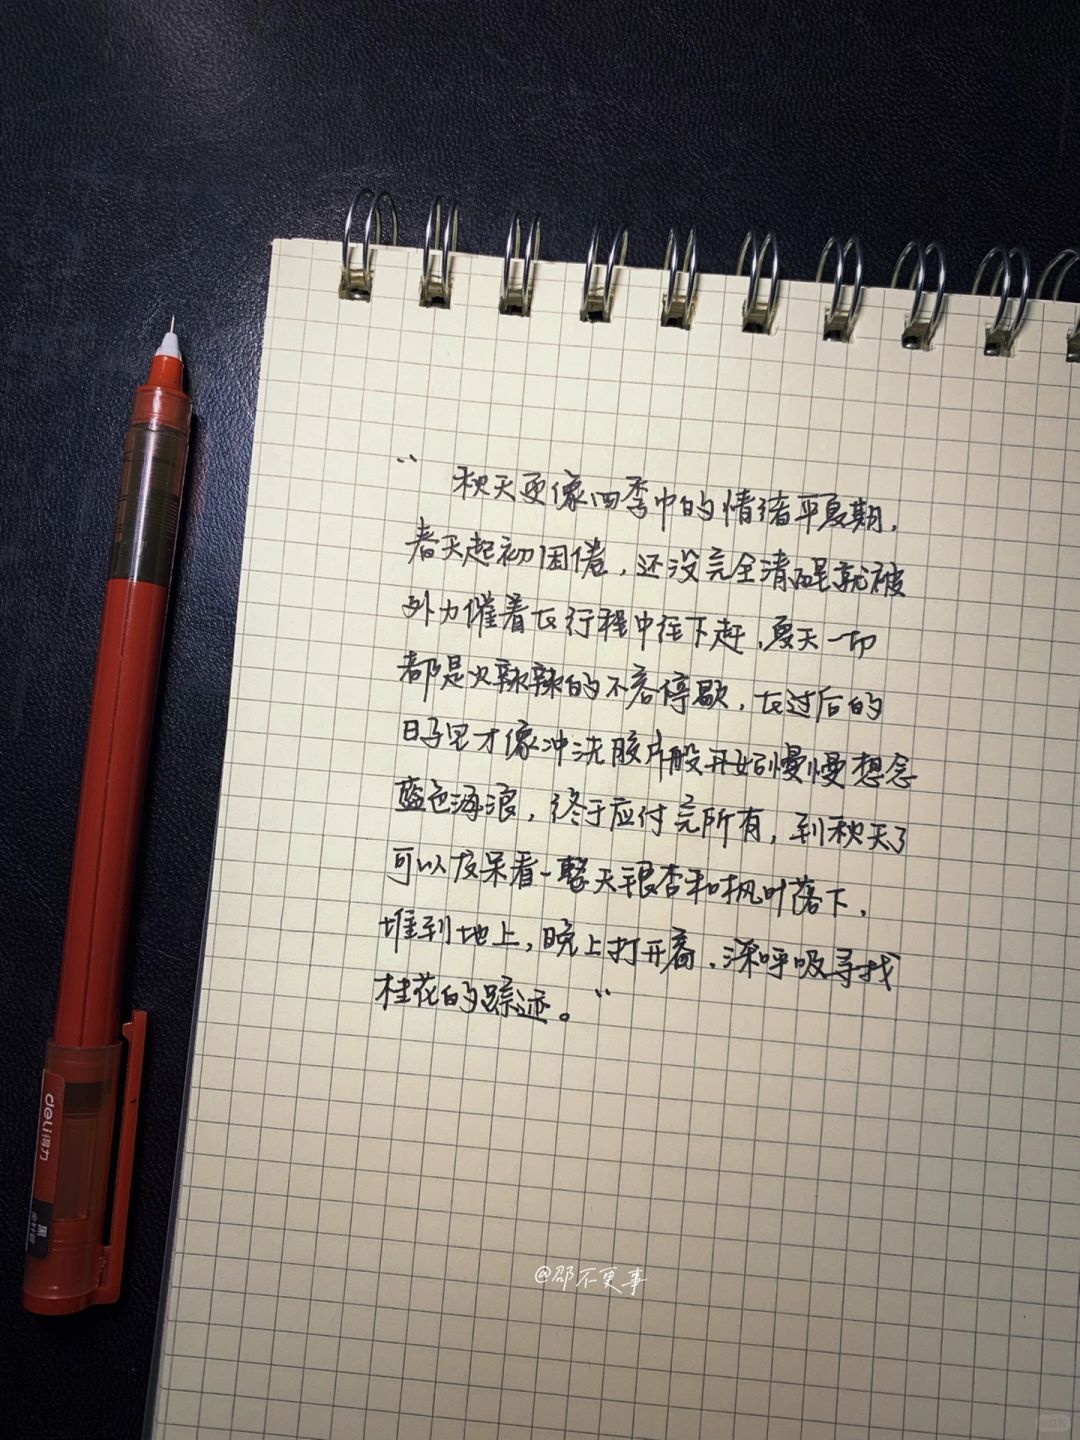 “ 秋天更像四季中的情绪平复期，
春天起初困倦，还没完全清醒就被
外力催着在行程中往下赶，夏天一切
都是火辣辣的不容停歇，在过后的
日子里才像冲洗胶片般开始慢慢想念
蓝色海浪，终于应付完所有，到秋天了
可以发呆看一整天银杏和枫叶落下，
堆到地上，晚上打开窗，深呼吸寻找
桂花的踪迹。”
deli得力
黑
@邵不更事
小红书